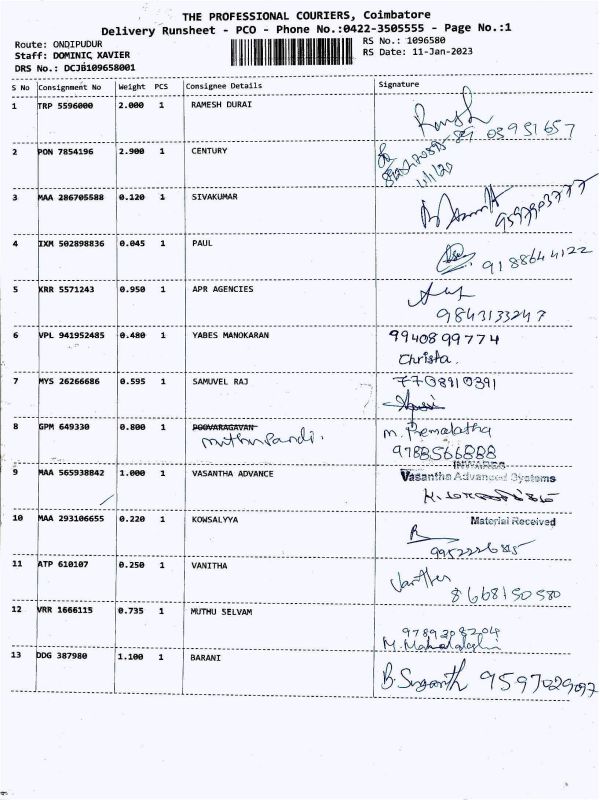 THE PROFESSIONAL COURIERS, Coimbatore
Delivery Runsheet - PCO - Phone No.:0422-3505555 - Page No.:1
Route: ONDIPUDUR RS No.: 1096580
Staff: DOMINIC XAVIER RS Date: 11-Jan-2023
DRS No.: DCJB109658001
S No Consignment No Weight PCS Consignee Details Signature
1 TRP 5596000 2.000 1 RAMESH DURAI
2 PON 7854196 2.900 1 CENTURY
3 MAA 286705588 0.120 1 SIVAKUMAR
4 IXM 502898836 0.045 1 PAUL
9188644122
5 KRR 5571243 0.950 1 APR AGENCIES
9843133247
6 VPL 941952485 0.480 1 YABES MANOKARAN 9940899774
Christa.
7 MYS 26266686 0.595 1 SAMUVEL RAJ 7708910391
8 GPM 649330 0.800 1 POOVARAGAVAN M. Premalatha
muthupandi. 9788566888
INWARDS
9 MAA 565938842 1.000 1 VASANTHA ADVANCE Vasantha Advanced Systems
10 MAA 293106655 0.220 1 KOWSALYYA Material Received
11 ATP 610107 0.250 1 VANITHA
8668150580
12 VRR 1666115 0.735 1 MUTHU SELVAM
9789208204
M. Mahalakshmi
13 DDG 387980 1.100 1 BARANI
B. Suganth 9597029097